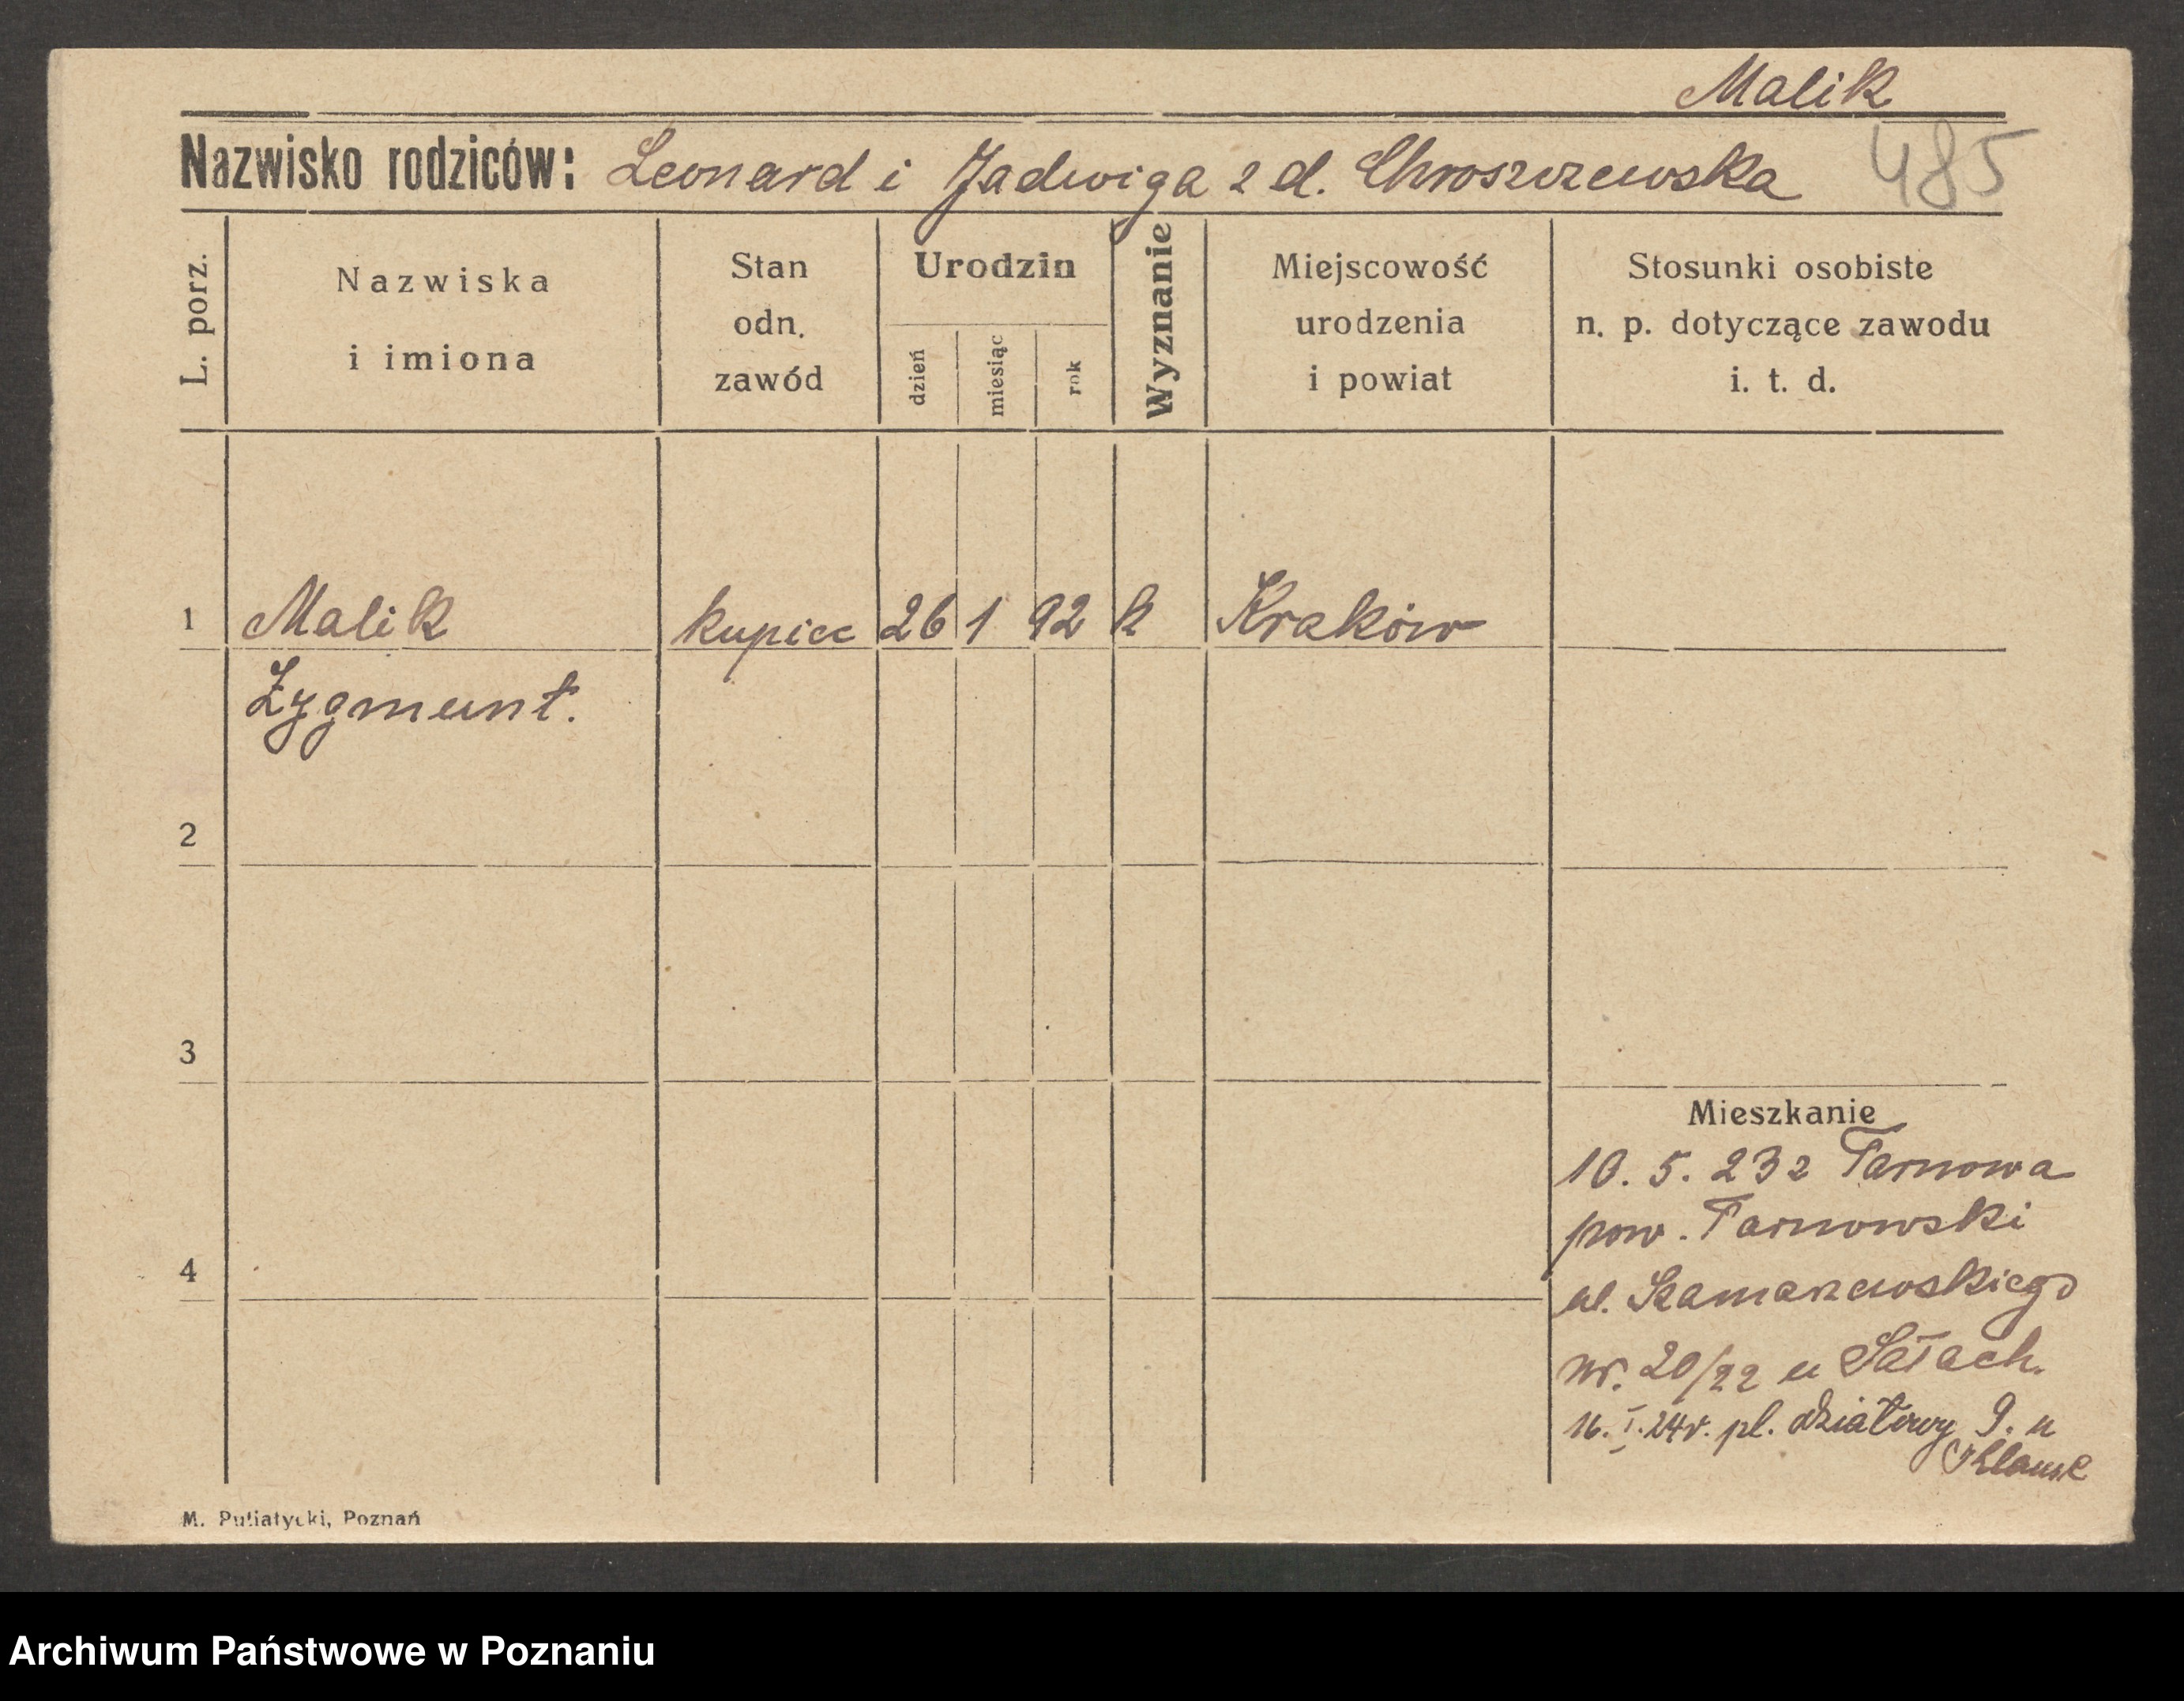 Malik
Nazwisko rodziców: Leonard i Jadwiga z d. Chroszczewska
485
L. porz.
Nazwiska
i imiona
Stan
odn.
zawód
Urodzin
dzień
miesiąc
rok
Wyznanie
Miejscowość
urodzenia
i powiat
Stosunki osobiste
n. p. dotyczące zawodu
i. t. d.
1 Malik kupiec 26 1 92 k Kraków
Zygmunt.
2
3
4
Mieszkanie
10. 5. 23 z Tarnowa
pow. Tarnowski
ul.
nr. 20/22 u
16. I. 24 r. pl. działowy 9. u
M. Putiatycki, Poznań
Archiwum Państwowe w Poznaniu